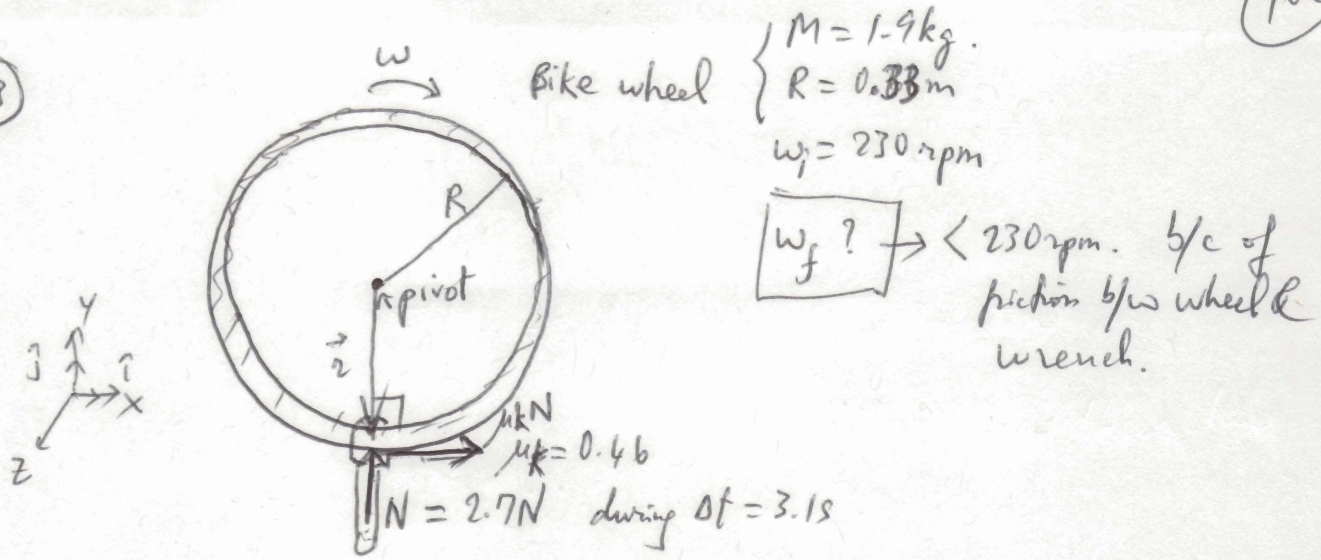 ω
Bike wheel
M = 1.9kg.
R = 0.33m
ωi = 230 rpm
ωf ? → < 230rpm. b/c of
friction b/w wheel &
wrench.
R
pivot
r
Y
ĵ
î
X
Z
μkN
μk = 0.46
N = 2.7N during Δt = 3.1s